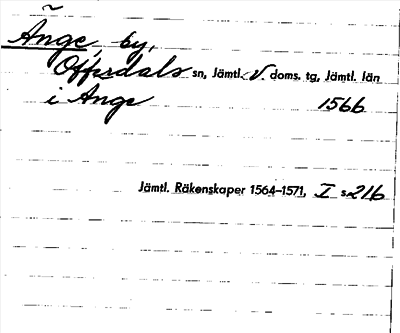 Ånge, by,
Offerdals sn, Jämtl. V doms. tg, Jämtl. län
i Ange 1566
Jämtl. Räkenskaper 1564–1571, I s. 216